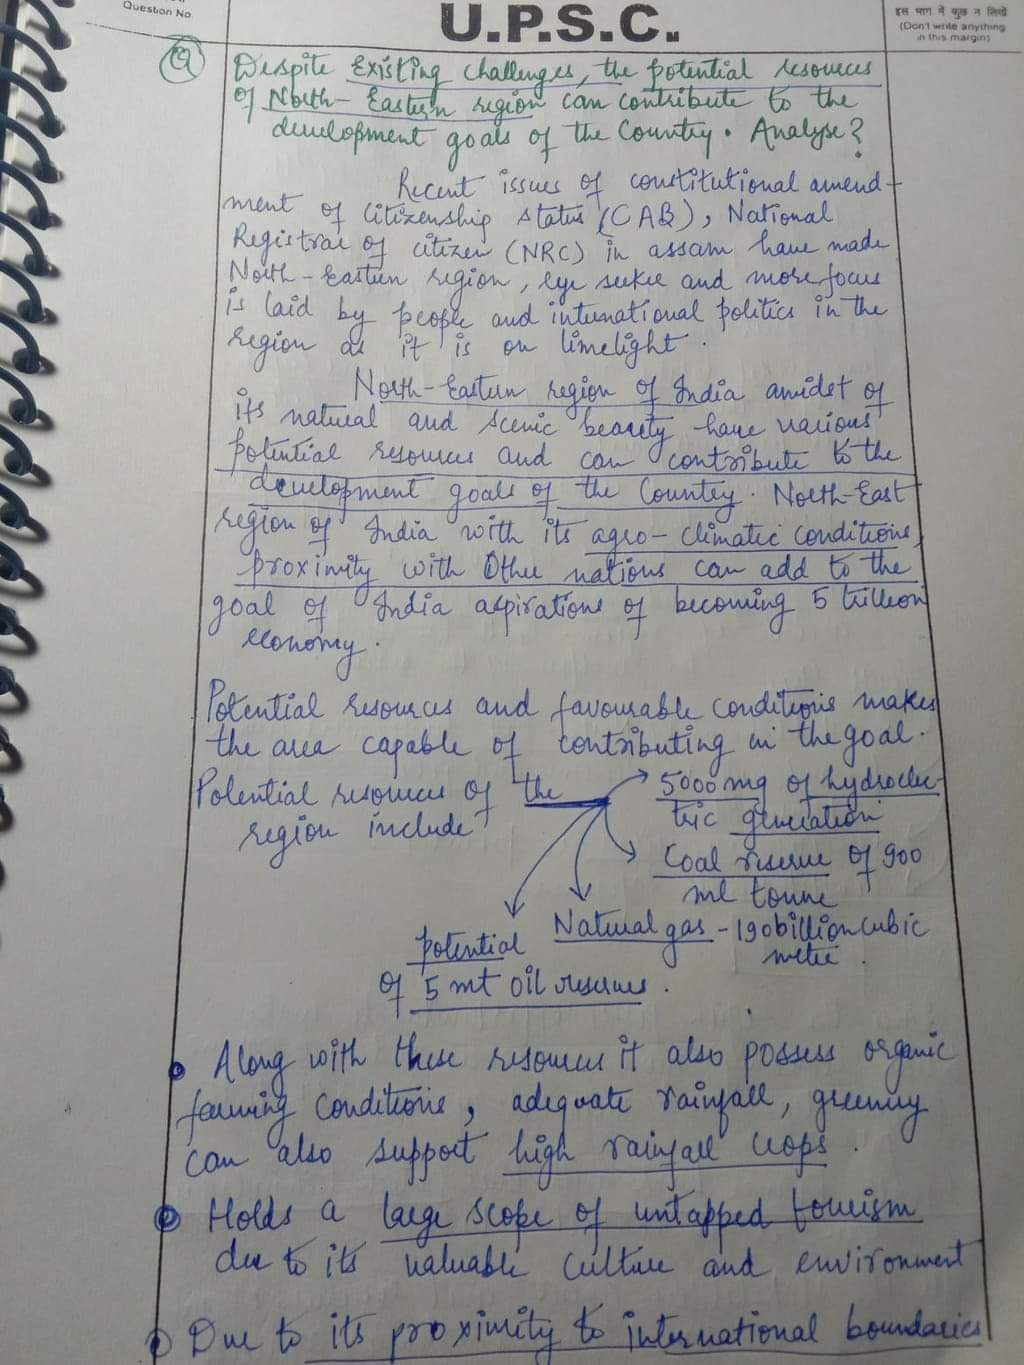 Question No.
U.P.S.C.
इस भाग में कुछ न लिखें
(Don't write anything
in this margin)
Q Despite Existing challenges, the potential resources
of North-Eastern region can contribute to the
development goals of the Country. Analyse?
Recent issues of constitutional amend-
ment of citizenship status (CAB), National
Registrar of citizen (NRC) in assam have made
North-Eastern region, eye seeker and more focus
is laid by people and international politics in the
region as it is on limelight.
North-Eastern region of India amidst of
its natural and scenic beauty have various
potential resources and can contribute to the
development goals of the Country. North-East
region of India with its agro-climatic conditions,
proximity with Other nations can add to the
goal of India aspirations of becoming 5 trillion
economy.
Potential resources and favourable conditions makes
the area capable of contributing in the goal.
Potential resources of the
region include
5000 mg of hydroelec-
tric generation
Coal reserve of 900
ml tonne
Natural gas - 190 billion cubic
metre.
potential
of 5 mt oil reserves.
Along with these resources it also possess organic
farming conditions, adequate rainfall, greenery
can also support high rainfall crops.
Holds a large scope of untapped tourism
due to its valuable culture and environment
Due to its proximity to international boundaries